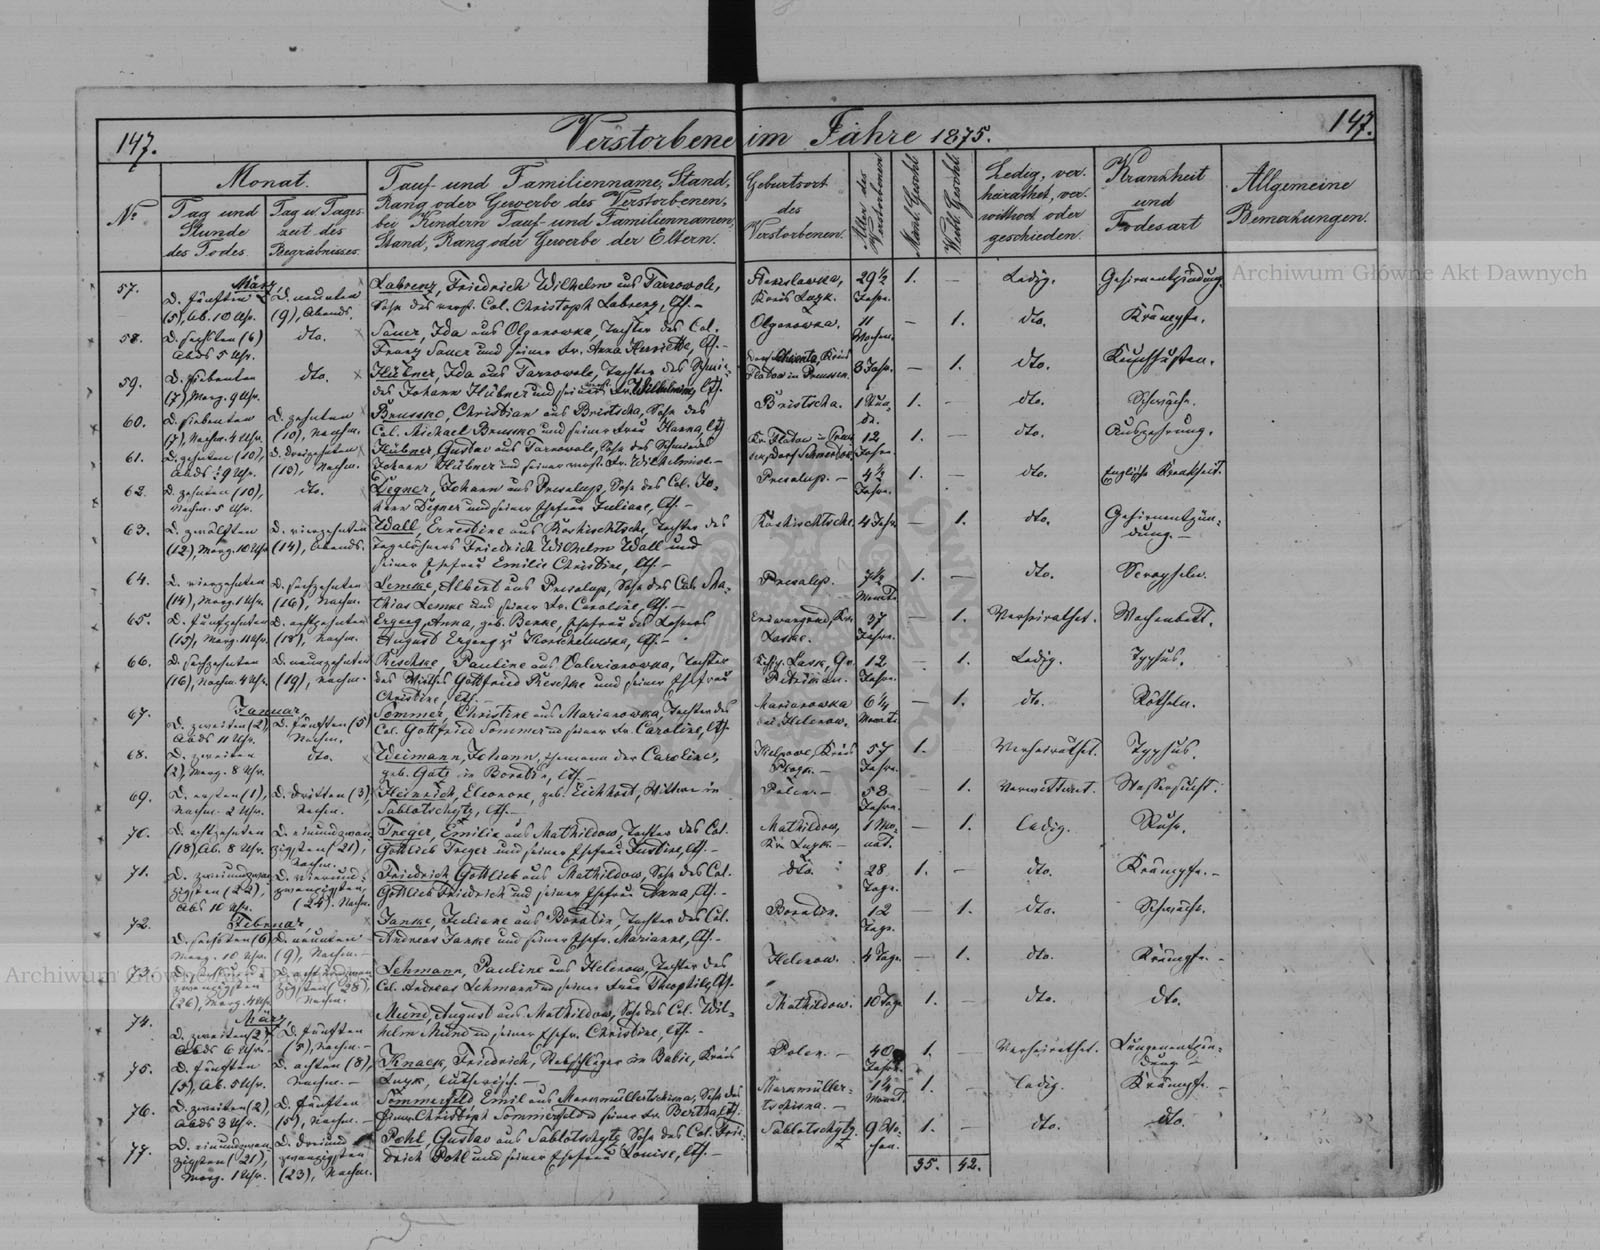 147.
Verstorbene im Jahre 1875.
147.
No
Monat.
Tag und
Stunde
des Todes.
Tag u. Tages-
zeit des
Begräbnisses.
Tauf- und Familienname, Stand,
Rang oder Gewerbe des Verstorbenen,
bei Kindern Tauf- und Familiennamen,
Stand, Rang oder Gewerbe der Eltern.
Geburtsort
des
Verstorbenen.
Alter des
Verstorbenen
Männl. Geschl.
Weibl. Geschl.
Ledig, ver-
heirathet, ver-
wittwet oder
geschieden.
Krankheit
und
Todesart
Allgemeine
Bemerkungen.
57.
März
D. fünften
(5), Ab. 10 Uhr.
D. neunten
(9), Abends.
Labrenz, Friedrich Wilhelm aus Tarnowole,
Sohn des verst. Col. Christoph Labrenz, Ehf. –
29 ½
Jahr.
1.
–
Ledig.
Gehirnentzündung.
58.
D. sechsten (6)
Abds 5 Uhr.
dto.
Sauer, Ida aus Olganowka, Tochter des Col.
Franz Sauer und seiner Fr. Anna Henriette, Ehf. –
Olganowka.
11
Wochen.
–
1.
dto.
Krämpfe.
59.
D. siebenten
(7) Morg. 9 Uhr.
dto.
Hübner, Ida aus Tarnowole, Tochter des Schmie-
des Johann Hübner und seiner Fr. Wilhelmine, Ehf.
Flatow in Preussen.
3 Jahr.
–
1.
dto.
Keuchhusten.
60.
D. siebenten
(7), Nachm. 4 Uhr.
D. zehnten
(10), Nachm.
Brussko, Christian aus Bristscha, Sohn des
Col. Michael Brussko und seiner Frau Hanna, Ehf.
Bristscha.
1 Stun-
de.
1.
dto.
Schwäche.
61.
D. zehnten (10),
Abds ½ 9 Uhr.
D. dreizehnten
(13), Nachm.
Hübner, Gustav aus Tarnowole, Sohn des Schmieds
Johann Hübner und seiner verst. Fr. Wilhelmine. –
12
Jahr.
1.
–
dto.
Auszehrung.
62.
D. zehnten (10),
Nachm. 5 Uhr.
dto.
Degner, Johann aus Presalup, Sohn des Col. Jo-
hann Degner und seiner Ehefrau Juliane, Ehf. –
Presalup. –
4 ½
Jahr.
1.
–
dto.
Englische Krankheit.
63.
D. zwölften
(12), Morg. 10 Uhr
D. vierzehnten
(14), Abends.
Wall, Ernestine aus Roshischtsche, Tochter des
Tagelöhners Friedrich Wilhelm Wall und
seiner Ehefrau Emilie Christine, Ehf. –
Roshischtsche.
4 Jahr
–
1.
dto.
Gehirnentzün-
dung. –
64.
D. vierzehnten
(14), Morg. 1 Uhr.
D. sechzehnten
(16), Nachm.
Lemke, Albert aus Presalup, Sohn des Col. Ma-
thias Lemke und seiner Fr. Caroline, Ehf. –
Presalup.
7 ½
Monate
1.
–
dto.
Scropheln.
65.
D. fünfzehnten
(15), Morg. 11 Uhr.
D. achtzehnten
(18), Nachm.
Ergang, Anna, geb. Benke, Ehefrau des Lehrers
August Ergang zu Korschelewka, Ehf. –
37
Jahre.
–
1.
Verheirathet.
Wochenbett.
66.
D. sechzehnten
(16), Nachm. 4 Uhr.
D. neunzehnten
(19), Nachm.
Reschke, Pauline aus Valerianowka, Tochter
des Wirths Gottfried Reschke und seiner Ehefrau
Christine, Ehf. –
12
Jahr.
–
1.
Ledig.
Typhus.
67.
Januar.
D. zweiten (2),
Abds 11 Uhr.
D. fünften (5)
Nachm.
Sommer, Christine aus Marianowka, Tochter des
Col. Gottfried Sommer und seiner Fr. Caroline, Ehf.
Marianowka
bei Helenow.
6 ¼
Monate.
–
1.
dto.
Rötheln.
68.
D. zweiten
(2), Morg. 8 Uhr.
dto.
Weimann, Johann, Ehemann der Caroline,
geb. Götz in Boratin, Ehf. –
57
Jahre.
1.
Verheirathet.
Typhus.
69.
D. ersten (1),
Nachm. 2 Uhr.
D. dritten (3),
Nachm.
Heinrich, Eleonore, geb. Eichhorst, Wittwe in
Sablotschytz, Ehf. –
Polen –
58
Jahre.
–
1.
Verwittwet.
Wassersucht.
70.
D. achtzehnten
(18), Ab. 8 Uhr.
D. einundzwan-
zigsten (21),
Nachm.
Treger, Emilie aus Mathildow, Tochter des Col.
Gottlieb Treger und seiner Ehefrau Justine, Ehf. –
Mathildow,
Kr. Luzk. –
1 Mo-
nat.
–
1.
Ledig.
Ruhr.
71.
D. zweiundzwan-
zigsten (22),
Abds 10 Uhr.
D. vierund-
zwanzigsten
(24). Nachm.
Friedrich, Gottlieb aus Mathildow, Sohn des Col.
Gottlieb Friedrich und seiner Ehefrau Anna, Ehf. –
dto.
28
Tage.
1.
–
dto.
Krämpfe. –
72.
Februar
D. sechsten (6)
Morg. 10 Uhr.
D. neunten
(9), Nachm. –
Janke, Juliane aus Boratin, Tochter des Col.
Andreas Janke und seiner Ehefr. Marianne, Ehf. –
Boratin.
12
Tage.
1.
dto.
Schwäche.
73.
(26), Morg. 4 Uhr
zigsten (28),
Nachm.
Lehmann, Pauline aus Helenow, Tochter des
Col. Andreas Lehmann und seiner Frau Theophile, Ehf.
Helenow.
4 Tage.
–
1.
dto.
Krämpfe. –
74.
März.
D. zweiten (2),
Abds 6 Uhr. –
D. fünften
(5), Nachm. –
Mund, August aus Mathildow, Sohn des Col. Wil-
helm Mund und seiner Ehefr. Christine, Ehf. –
Mathildow.
10 Tage
1.
–
dto.
dto.
75.
D. fünften
(5), Ab. 5 Uhr.
D. achten (8),
Nachm. –
Knaek, Friedrich, in Babie, Kreis
Luzk, lutherisch. –
Polen. –
40
Jahre.
1.
–
Verheirathet.
Lungenentzün-
dung –
76.
D. zweiten (2),
Abds 3 Uhr. –
D. fünften
(5), Nachm. –
Sommerfeld Emil aus Marxmüllertschisna, Sohn des
Christoph Sommerfeld und seiner Fr. Bertha, Ehf.
Marxmüller-
tschisna. –
1 ¼
Monat.
1.
–
ledig.
Krämpfe. –
77.
D. einundzwan-
zigsten (21),
Morg. 1 Uhr.
D. dreiund-
zwanzigsten
(23), Nachm.
Pohl, Gustav aus Sablotschytz, Sohn des Col. Frie-
drich Pohl und seiner Ehefrau Louise, Ehf. –
Sablotschytz.
9 Wo-
chen.
1.
–
dto.
dto.
35.
42.
Archiwum Główne Akt Dawnych
Archiwum Główne Akt Dawnych